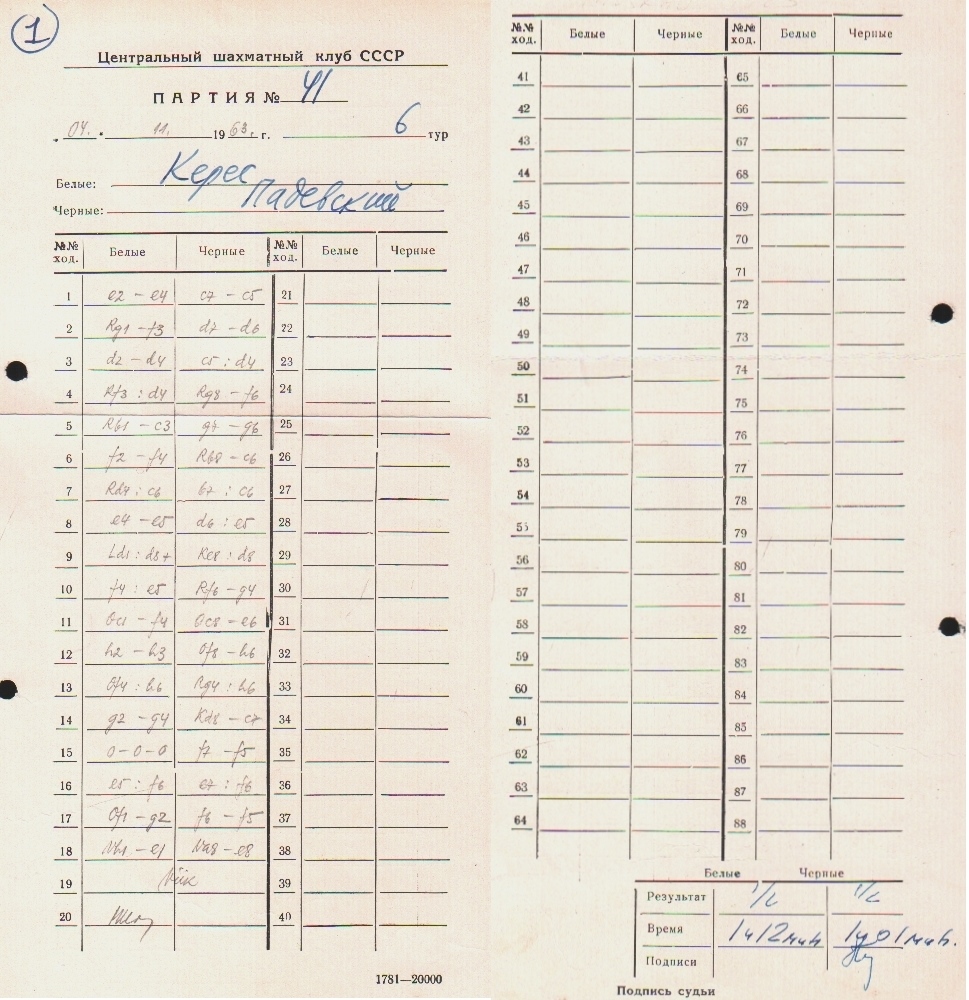 1
Центральный шахматный клуб СССР
ПАРТИЯ № 41
„04.“ 11. 1963 г. 6 тур
Белые: Керес
Черные: Падевский
№№ ход. Белые Черные №№ ход. Белые Черные
1 e2 – e4 c7 – c5 21
2 Rg1 – f3 d7 – d6 22
3 d2 – d4 c5 : d4 23
4 Rf3 : d4 Rg8 – f6 24
5 Rb1 – c3 g7 – g6 25
6 f2 – f4 Rb8 – c6 26
7 Rd4 : c6 b7 : c6 27
8 e4 – e5 d6 : e5 28
9 Ld1 : d8+ Ke8 : d8 29
10 f4 : e5 Rf6 – g4 30
11 Oc1 – f4 Oc8 – e6 31
12 h2 – h3 Of8 – h6 32
13 Of4 : h6 Rg4 : h6 33
14 g2 – g4 Kd8 – c7 34
15 0 – 0 – 0 f7 – f5 35
16 e5 : f6 e7 : f6 36
17 Of1 – g2 f6 – f5 37
18 Vh1 – e1 Va8 – e8 38
19 Viik 39
20 40
1781—20000
№№ ход. Белые Черные №№ ход. Белые Черные
41 65
42 66
43 67
44 68
45 69
46 70
47 71
48 72
49 73
50 74
51 75
52 76
53 77
54 78
55 79
56 80
57 81
58 82
59 83
60 84
61 85
62 86
63 87
64 88
Белые Черные
Результат ½ ½
Время 1ч12мин 1ч01мин.
Подписи
Подпись судьи